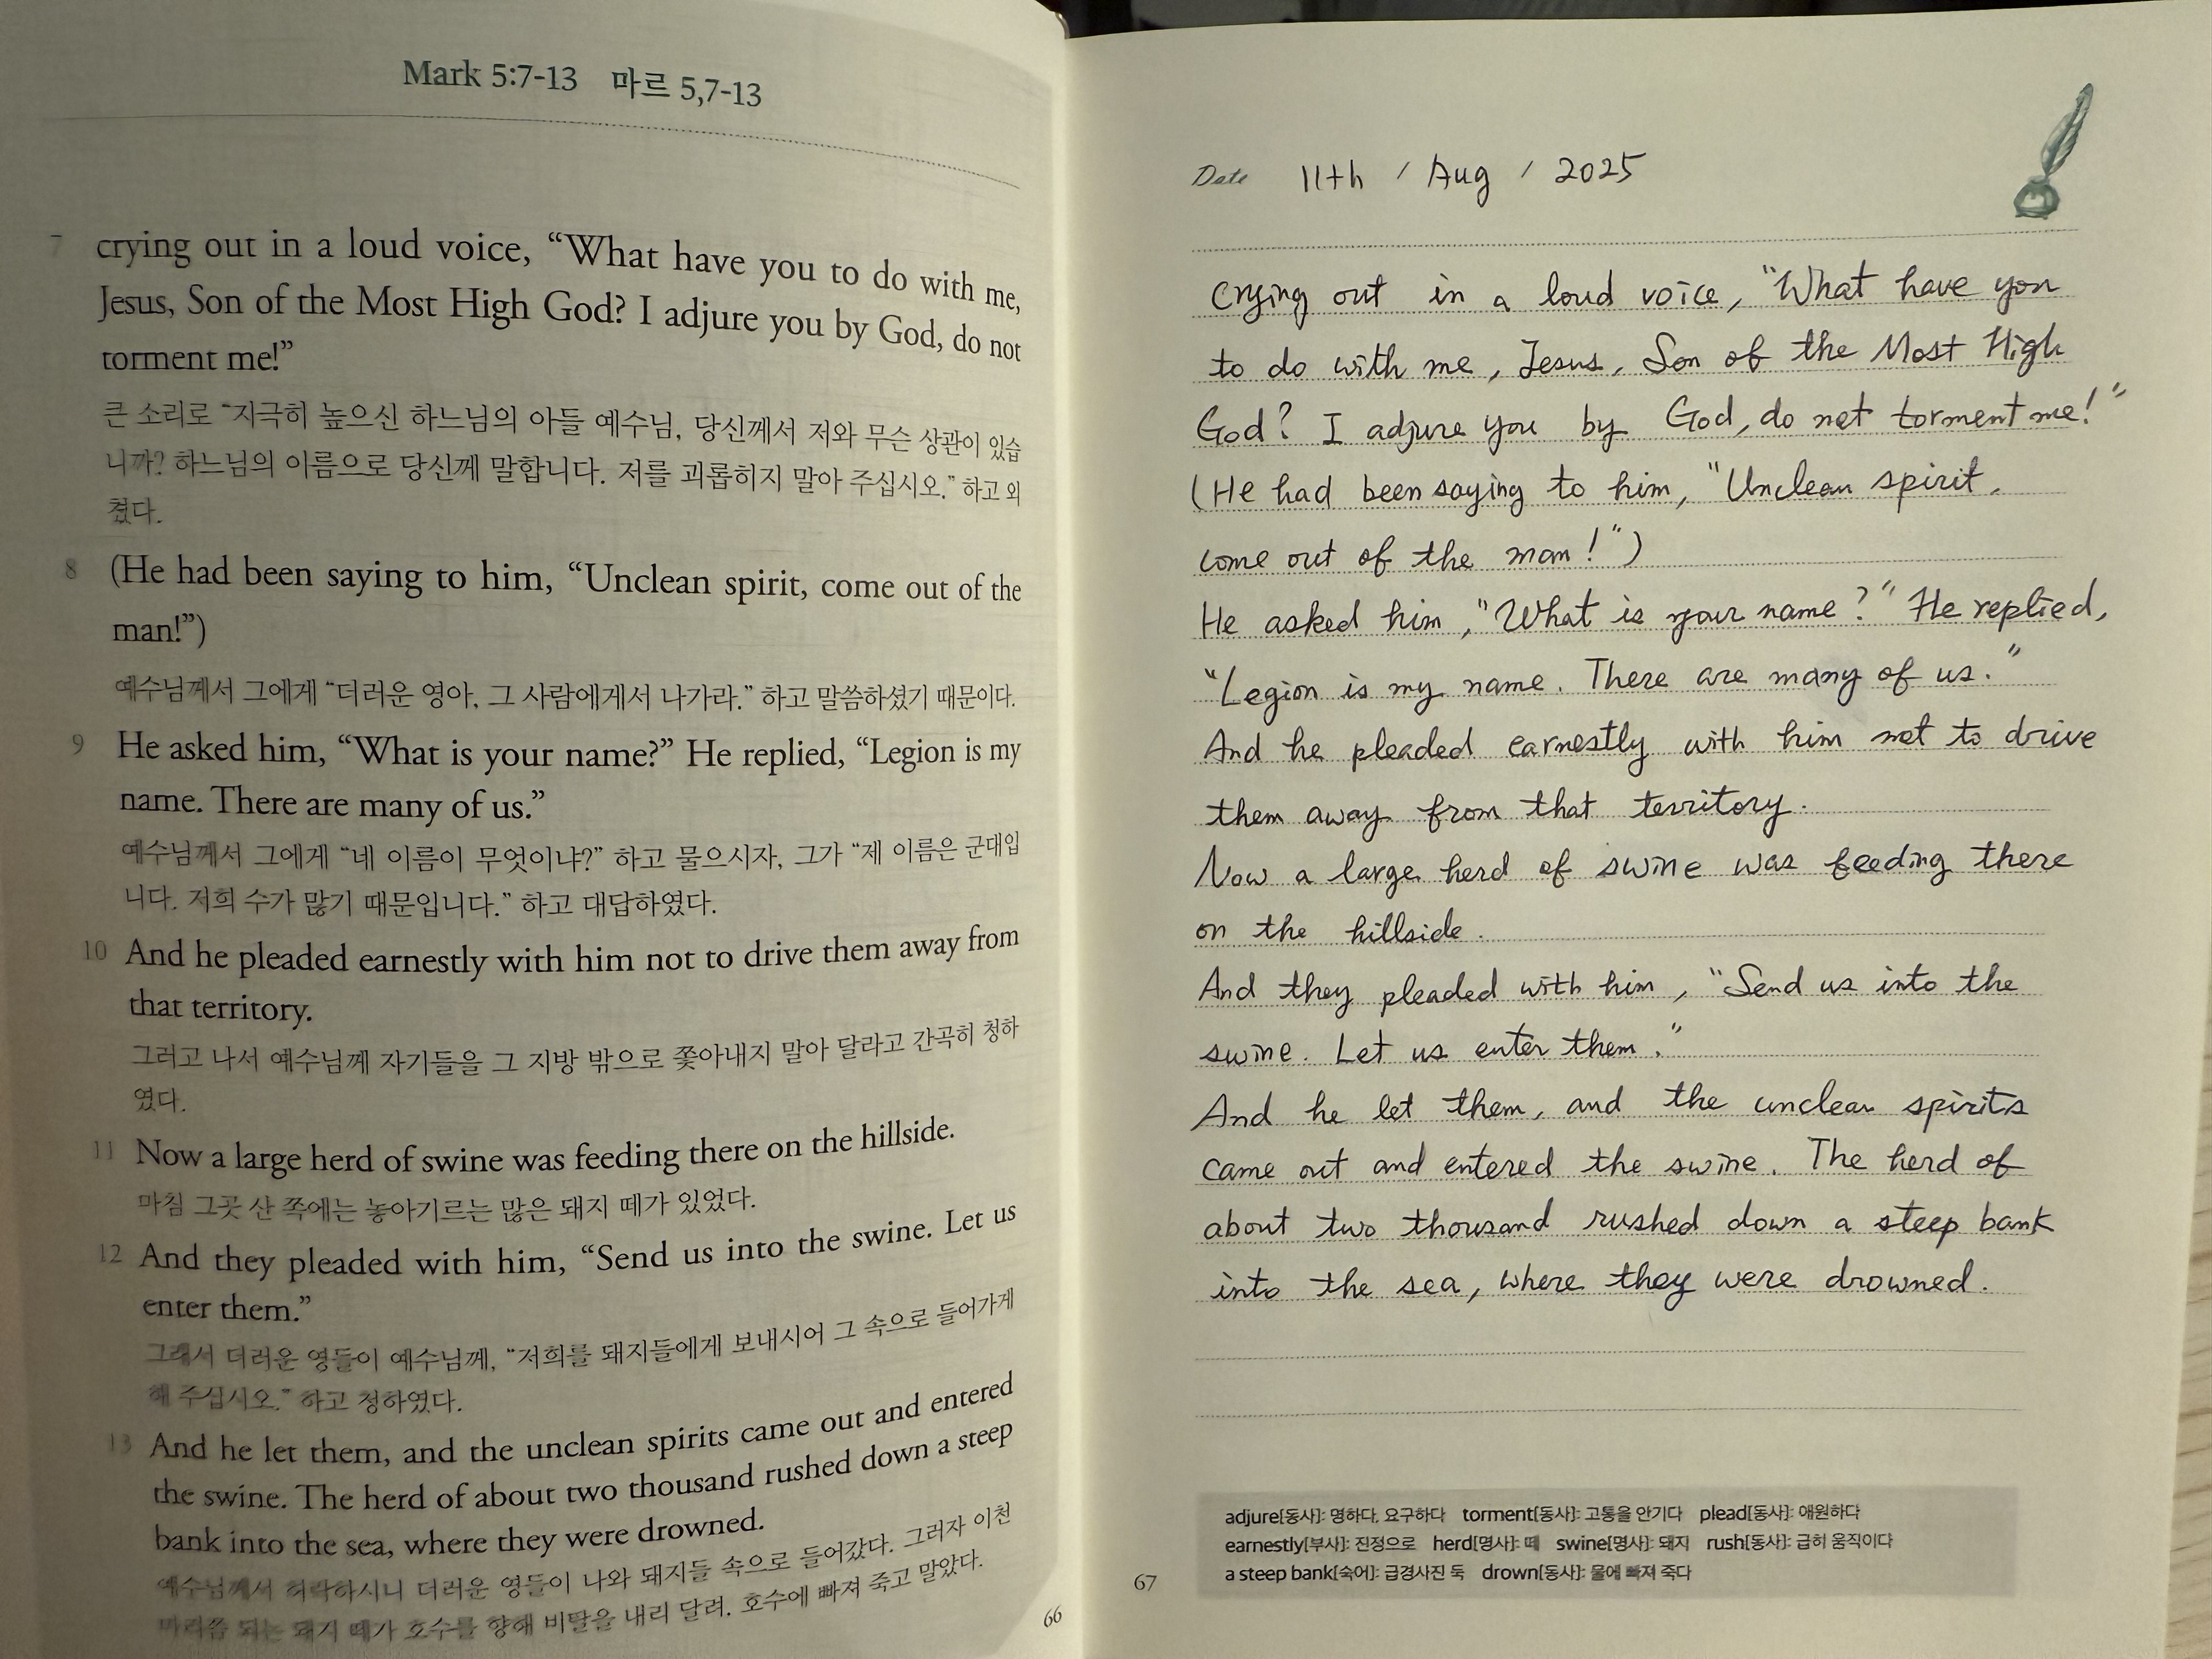 Mark 5:7-13 마르 5,7-13
7 crying out in a loud voice, “What have you to do with me,
Jesus, Son of the Most High God? I adjure you by God, do not
torment me!”
큰 소리로 “지극히 높으신 하느님의 아들 예수님, 당신께서 저와 무슨 상관이 있습
니까? 하느님의 이름으로 당신께 말합니다. 저를 괴롭히지 말아 주십시오.” 하고 외
쳤다.
8 (He had been saying to him, “Unclean spirit, come out of the
man!”)
예수님께서 그에게 “더러운 영아, 그 사람에게서 나가라.” 하고 말씀하셨기 때문이다.
9 He asked him, “What is your name?” He replied, “Legion is my
name. There are many of us.”
예수님께서 그에게 “네 이름이 무엇이냐?” 하고 물으시자, 그가 “제 이름은 군대입
니다. 저희 수가 많기 때문입니다.” 하고 대답하였다.
10 And he pleaded earnestly with him not to drive them away from
that territory.
그러고 나서 예수님께 자기들을 그 지방 밖으로 쫓아내지 말아 달라고 간곡히 청하
였다.
11 Now a large herd of swine was feeding there on the hillside.
마침 그곳 산 쪽에는 놓아기르는 많은 돼지 떼가 있었다.
12 And they pleaded with him, “Send us into the swine. Let us
enter them.”
그래서 더러운 영들이 예수님께, “저희를 돼지들에게 보내시어 그 속으로 들어가게
해 주십시오.” 하고 청하였다.
13 And he let them, and the unclean spirits came out and entered
the swine. The herd of about two thousand rushed down a steep
bank into the sea, where they were drowned.
예수님께서 허락하시니 더러운 영들이 나와 돼지들 속으로 들어갔다. 그러자 이천
마리쯤 되는 돼지 떼가 호수를 향해 비탈을 내리 달려, 호수에 빠져 죽고 말았다.
66
Date 11th / Aug / 2025
crying out in a loud voice, "What have you
to do with me, Jesus, Son of the Most High
God? I adjure you by God, do not torment me!"
(He had been saying to him, "Unclean spirit,
come out of the man!")
He asked him, "What is your name?" He replied,
"Legion is my name. There are many of us."
And he pleaded earnestly with him not to drive
them away from that territory.
Now a large herd of swine was feeding there
on the hillside.
And they pleaded with him, "Send us into the
swine. Let us enter them."
And he let them, and the unclean spirits
came out and entered the swine. The herd of
about two thousand rushed down a steep bank
into the sea, where they were drowned.
adjure[동사]: 명하다, 요구하다 torment[동사]: 고통을 안기다 plead[동사]: 애원하다
earnestly[부사]: 진정으로 herd[명사]: 떼 swine[명사]: 돼지 rush[동사]: 급히 움직이다
a steep bank[숙어]: 급경사진 둑 drown[동사]: 물에 빠져 죽다
67